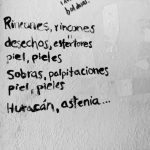 Rincones, rincones
desechos, estertores
piel, pieles
Sobras, palpitaciones
piel, pieles
Huracán, astenia...